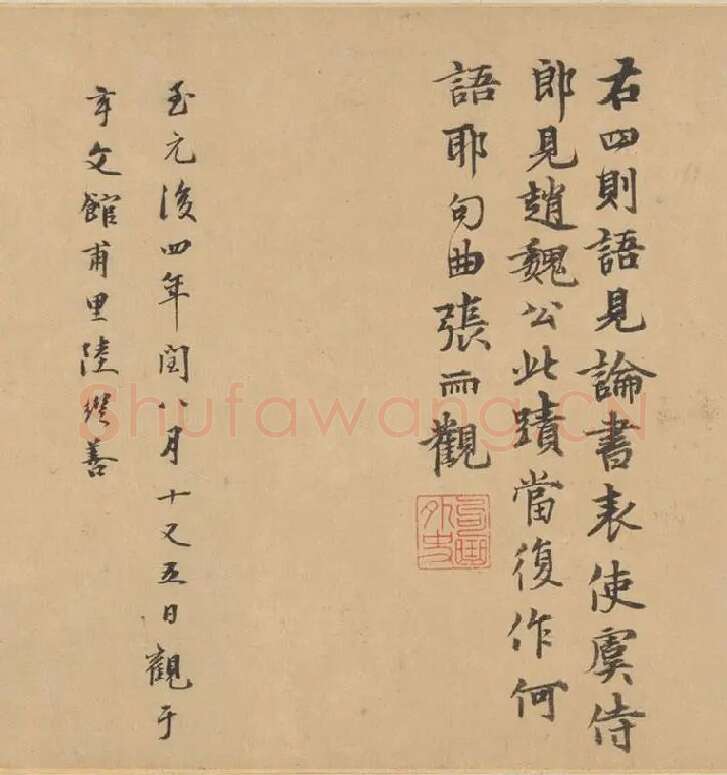 右四則語見論書表使虞侍
郎見趙魏公此蹟當復作何
語耶句曲張雨觀
句曲外史
至元後四年閏八月十又五日觀于
玄文館甫里陸繼善
Shufawang.CN